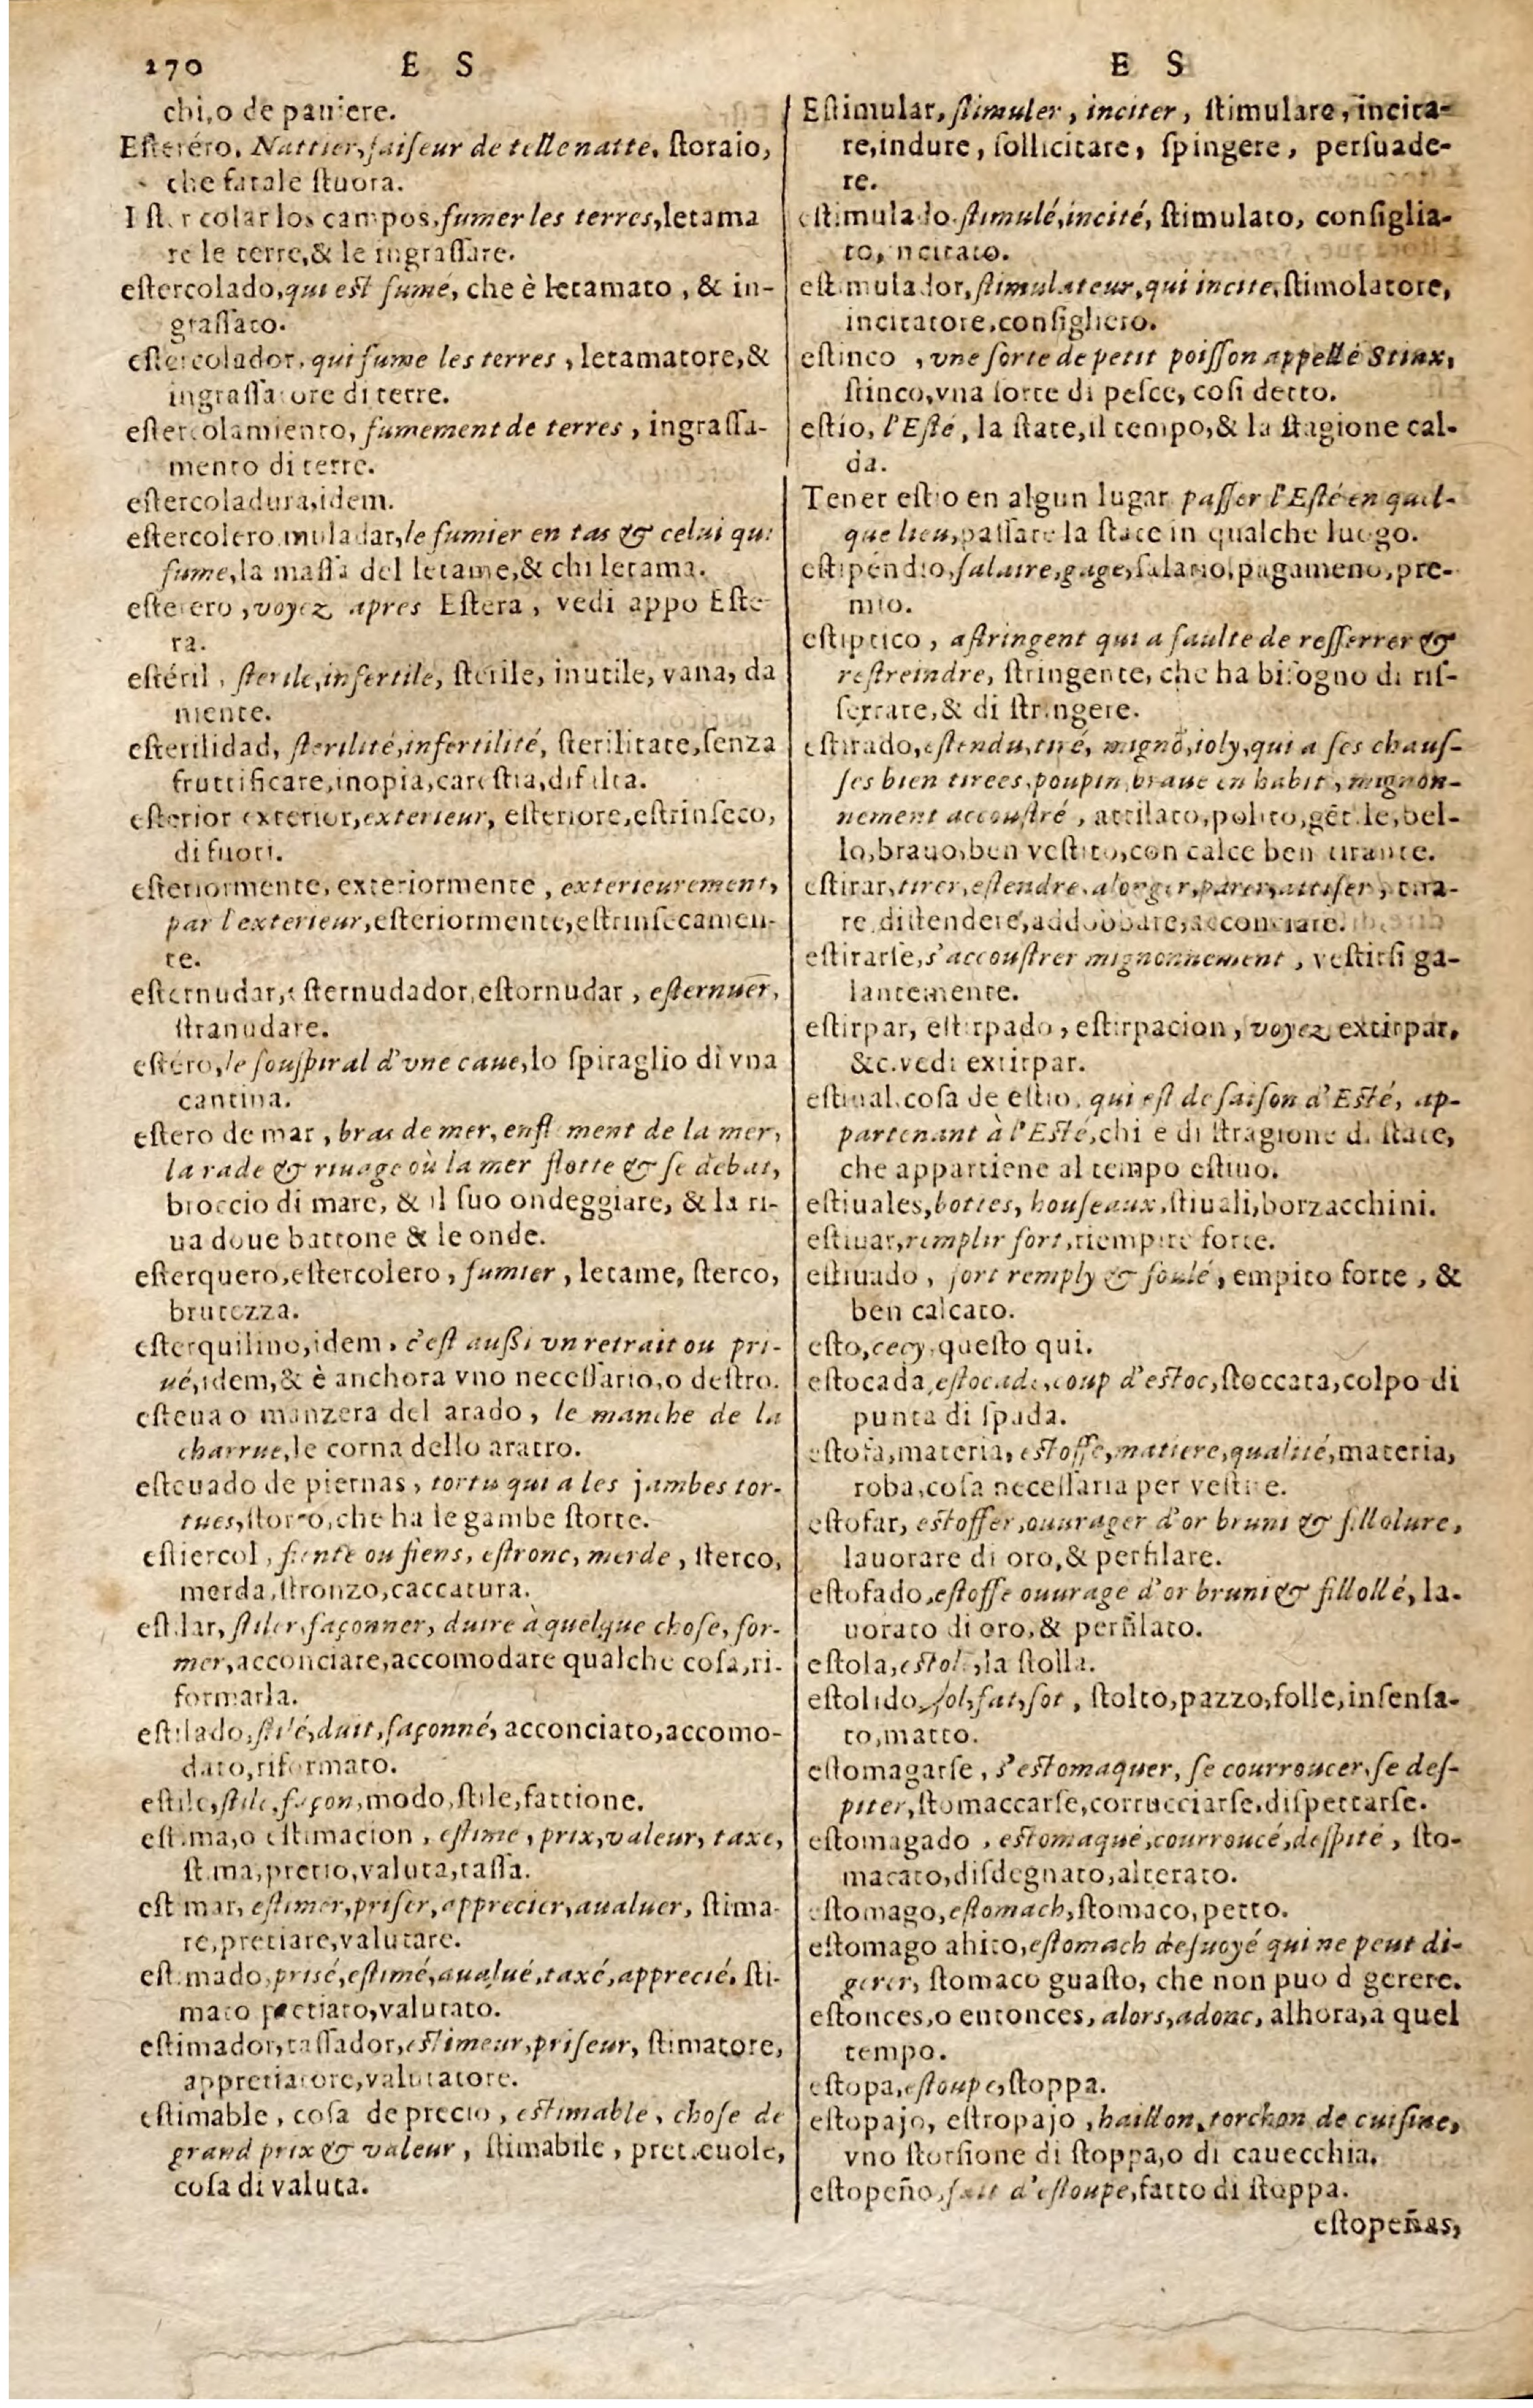 270 E S
E S
chi, o de paniere.
Esteréro, Nattier, faiseur de telle natte, storaio,
che fa tale stuora.
Estercolar los campos, fumer les terres, letama
re le terre, & le ingrassare.
estercolado, qui est fumé, che è letamato, & in-
grassato.
estercolador, qui fume les terres, letamatore, &
ingrassatore di terre.
estercolamiento, fumement de terres, ingrassa-
mento di terre.
estercoladura, idem.
estercolero muladar, le fumier en tas & celui qui
fume, la massa del letame, & chi letama.
esterero, voyez apres Estera, vedi appo Este-
ra.
estéril, sterile, infertile, sterile, inutile, vana, da
niente.
esterilidad, sterilité, infertilité, sterilitate, senza
fruttificare, inopia, carestia, disdita.
esterior exterior, exterieur, esteriore, estrinseco,
di fuori.
esteriormente, exteriormente, exterieurement,
par l'exterieur, esteriormente, estrinsecamen-
te.
esternudar, esternudador, estornudar, esternuer,
stranudare.
estéro, le souspiral d'vne caue, lo spiraglio di vna
cantina.
estero de mar, bras de mer, enflement de la mer,
la rade & riuage où la mer flotte & se debat,
broccio di mare, & il suo ondeggiare, & la ri-
ua doue battone & le onde.
esterquero, estercolero, fumier, letame, sterco,
brutezza.
esterquilino, idem, c'est aussi vn retrait ou pri-
ué, idem, & è anchora vno necessario, o destro.
esteua o manzera del arado, le manche de la
charrue, le corna dello aratro.
esteuado de piernas, tortu qui a les jambes tor-
tues, storto, che ha le gambe storte.
estiercol, fiente ou fiens, estronc, merde, sterco,
merda, stronzo, caccatura.
estilar, stiler, façonner, duire à quelque chose, for-
mer, acconciare, accomodare qualche cosa, ri-
formarla.
estilado, stilé, duit, façonné, acconciato, accomo-
dato, riformato.
estilo, stile, façon, modo, stile, fattione.
estima, o estimacion, estime, prix, valeur, taxe,
stima, pretio, valuta, tassa.
estimar, estimer, priser, apprecier, aualuer, stima-
re, pretiare, valutare.
estimado, prisé, estimé, aualué, taxé, apprecié, sti-
mato pretiato, valutato.
estimador, tassador, estimeur, priseur, stimatore,
appretiatore, valutatore.
estimable, cosa de precio, estimable, chose de
grand prix & valeur, stimabile, preteuole,
cosa di valuta.
Estimular, stimuler, inciter, stimulare, incita-
re, indure, sollicitare, spingere, persuade-
re.
estimulado stimulé, incité, stimulato, consiglia-
to, incitato.
estimulador, stimulateur, qui incite, stimolatore,
incitatore, consigliero.
estinco, vne sorte de petit poisson appellé Stinx,
stinco, vna sorte di pesce, cosi detto.
estío, l'Esté, la state, il tempo, & la stagione cal-
da.
Tener estio en algun lugar passer l'Esté en quel-
que lieu, passare la state in qualche luogo.
estipéndio, salaire, gage, salario, pagameno, pre-
mio.
estiptico, astringent qui a faulte de resserrer &
restreindre, stringente, che ha bisogno di ris-
serrare, & di stringere.
estirado, estendu, tiré, mignõ, ioly, qui a ses chauf-
ses bien tirees, poupin, braue en habit, mignon-
nement accoustré, attilato, polito, gẽtile, bel-
lo, brauo, ben vestito, con calce ben tirante.
estirar, tirer, estendre, alonger, parer, attiser, tira-
re, distendere, addobbare, acconciare.
estirarse, s'accoustrer mignonnement, vestirsi ga-
lantemente.
estirpar, estirpado, estirpacion, voyez extirpar,
&c. vedi extirpar.
estiual, cosa de estio, qui est de saison d'Esté, ap-
partenant à l'Esté, chi e di stragione di state,
che appartiene al tempo estiuo.
estiuales, bottes, houseaux, stiuali, borzacchini.
estiuar, remplir fort, riempire forte.
estiuado, fort remply & foulé, empito forte, &
ben calcato.
esto, cecy, questo qui.
estocada, estocade, coup d'estoc, stoccata, colpo di
punta di spada.
estofa, materia, estoffe, matiere, qualité, materia,
roba, cosa necessaria per vestire.
estofar, estoffer, ouurager d'or bruni & fillolure,
lauorare di oro, & perfilare.
estofado, estoffe ouurage d'or bruni & fillollé, la-
uorato di oro, & perfilato.
estola, estole, la stolla.
estolido, fol, fat, sot, stolto, pazzo, folle, insensa-
to, matto.
estomagarse, s'estomaquer, se courroucer, se des-
piter, stomaccarse, corrucciarse, dispettarse.
estomagado, estomaqué, courroucé, despité, sto-
macato, disdegnato, alterato.
estomago, estomach, stomaco, petto.
estomago ahito, estomach desuoyé qui ne peut di-
gerer, stomaco guasto, che non puo digerere.
estonces, o entonces, alors, adonc, alhora, a quel
tempo.
estopa, estoupe, stoppa.
estopajo, estropajo, haillon, torchon de cuisine,
vno storsione di stoppa, o di cauecchia.
estopeño, fait d'estoupe, fatto di stoppa.
estopeñas,